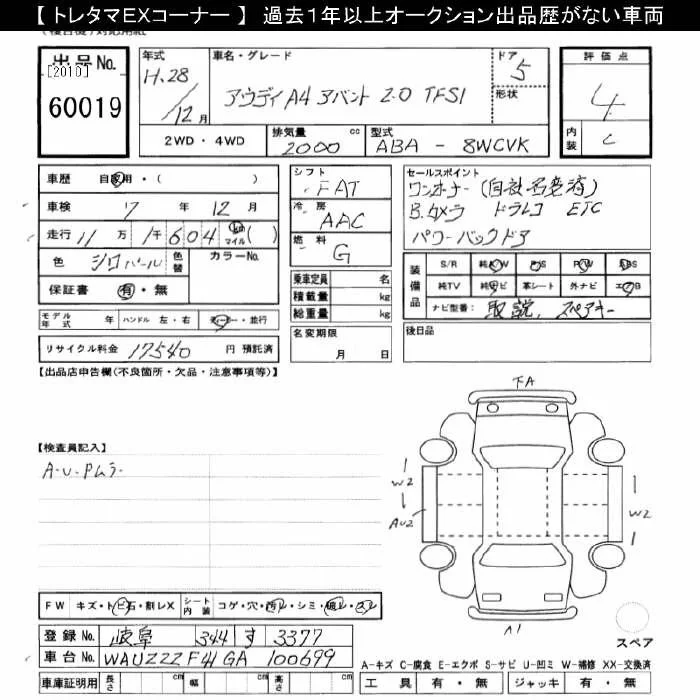 【 トレタマＥＸコーナー 】 過去１年以上オークション出品歴がない車両
出 品 No.
[2010]
60019
年式
H.28
12 月
車名・グレード
アウディ A4 アバント 2.0 TFSI
ドア
5
形状
2WD・4WD
排気量 cc
2000
型式
ABA - 8WCVK
評 価 点
4
内装
C
車歴 自家用・( )
車検 17 年 12 月
走行 11 万 1千 6 0 4 km マイル ( )
色 シロパール 色替 カラーNo.
保証書 有・無
モデル年式 年 ハンドル 左・右 ディーラー・並行
リサイクル料金 17540 円 預託済
シフト
FAT
冷房
AAC
燃料
G
乗車定員 名
積載量 kg
総重量 kg
名変期限
月 日
セールスポイント
ワンオーナー (自社名変済)
B.カメラ ドラレコ ETC
パワーバックドア
装備品
S/R 純A/W P/S P/W ABS
純TV 純ナビ 革シート 外ナビ エアB
ナビ型番 取説、スペアキー
後日品
【出品店申告欄(不良箇所・欠品・注意事項等)】
【検査員記入】
A-U-Pムラ
FA
W2
AU2
W2
A1
スペア
FW キズ・トビ石・割レX シート内装 コゲ・穴・汚レ・シミ・破レ・スレ
登録 No. 岐阜 344 す 3377
車台 No. WAUZZZF41GA 100699
車庫証明用 長さ cm 幅 cm 高さ cm
A－キズ C－腐食 E－エクボ S－サビ U－凹ミ W－補修 XX－交換済
工 具 有・無 ジャッキ 有・無